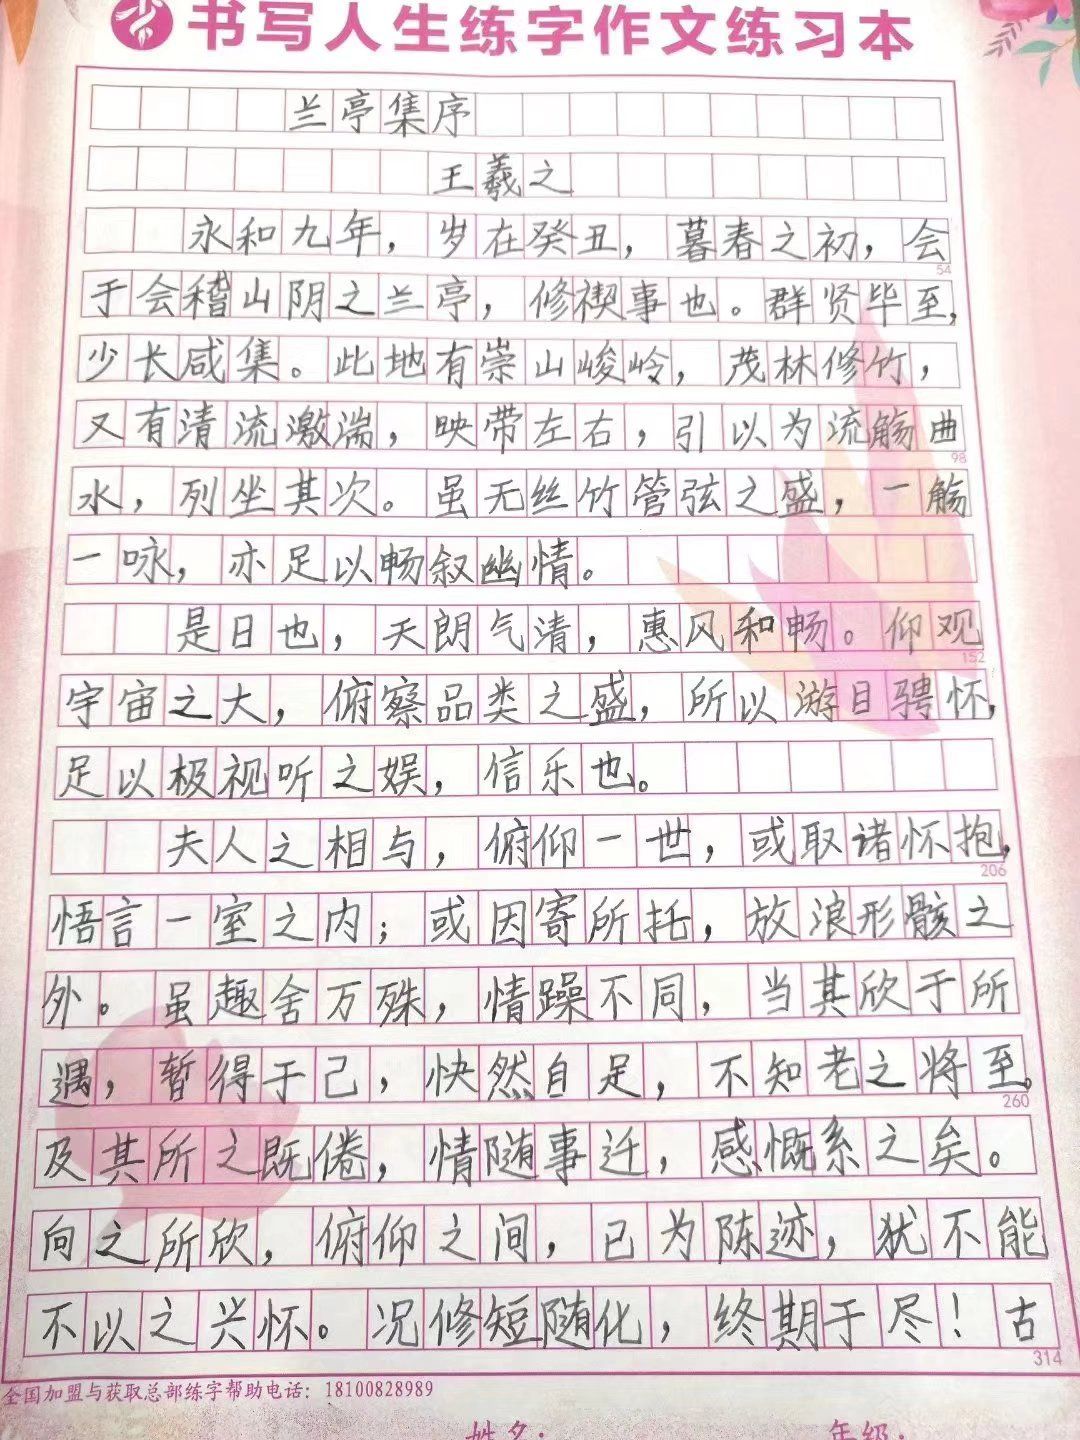 书写人生练字作文练习本
兰亭集序
王羲之
永和九年，岁在癸丑，暮春之初，会
54
于会稽山阴之兰亭，修禊事也。群贤毕至，
少长咸集。此地有崇山峻岭，茂林修竹，
又有清流激湍，映带左右，引以为流觞曲
98
水，列坐其次。虽无丝竹管弦之盛，一觞
一咏，亦足以畅叙幽情。
是日也，天朗气清，惠风和畅。仰观
152
宇宙之大，俯察品类之盛，所以游目骋怀，
足以极视听之娱，信乐也。
夫人之相与，俯仰一世，或取诸怀抱，
206
悟言一室之内；或因寄所托，放浪形骸之
外。虽趣舍万殊，情躁不同，当其欣于所
遇，暂得于己，快然自足，不知老之将至。
260
及其所之既倦，情随事迁，感慨系之矣。
向之所欣，俯仰之间，已为陈迹，犹不能
不以之兴怀。况修短随化，终期于尽！古
314
全国加盟与获取总部练字帮助电话：18100828989
姓名： 年级：